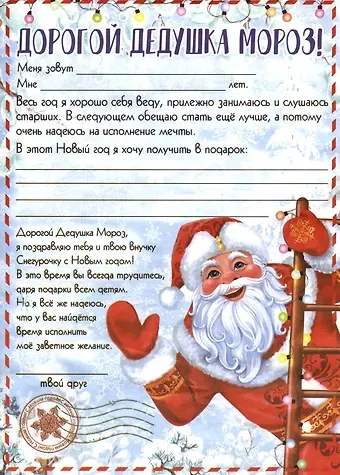 ДОРОГОЙ ДЕДУШКА МОРОЗ!
Меня зовут
Мне лет.
Весь год я хорошо себя веду, прилежно занимаюсь и слушаюсь
старших. В следующем обещаю стать ещё лучше, а потому
очень надеюсь на исполнение мечты.
В этот Новый год я хочу получить в подарок:
Дорогой Дедушка Мороз,
я поздравляю тебя и твою внучку
Снегурочку с Новым годом!
В это время вы всегда трудитесь,
даря подарки всем детям.
Но я всё же надеюсь,
что у вас найдётся
время исполнить
моё заветное желание.
твой друг